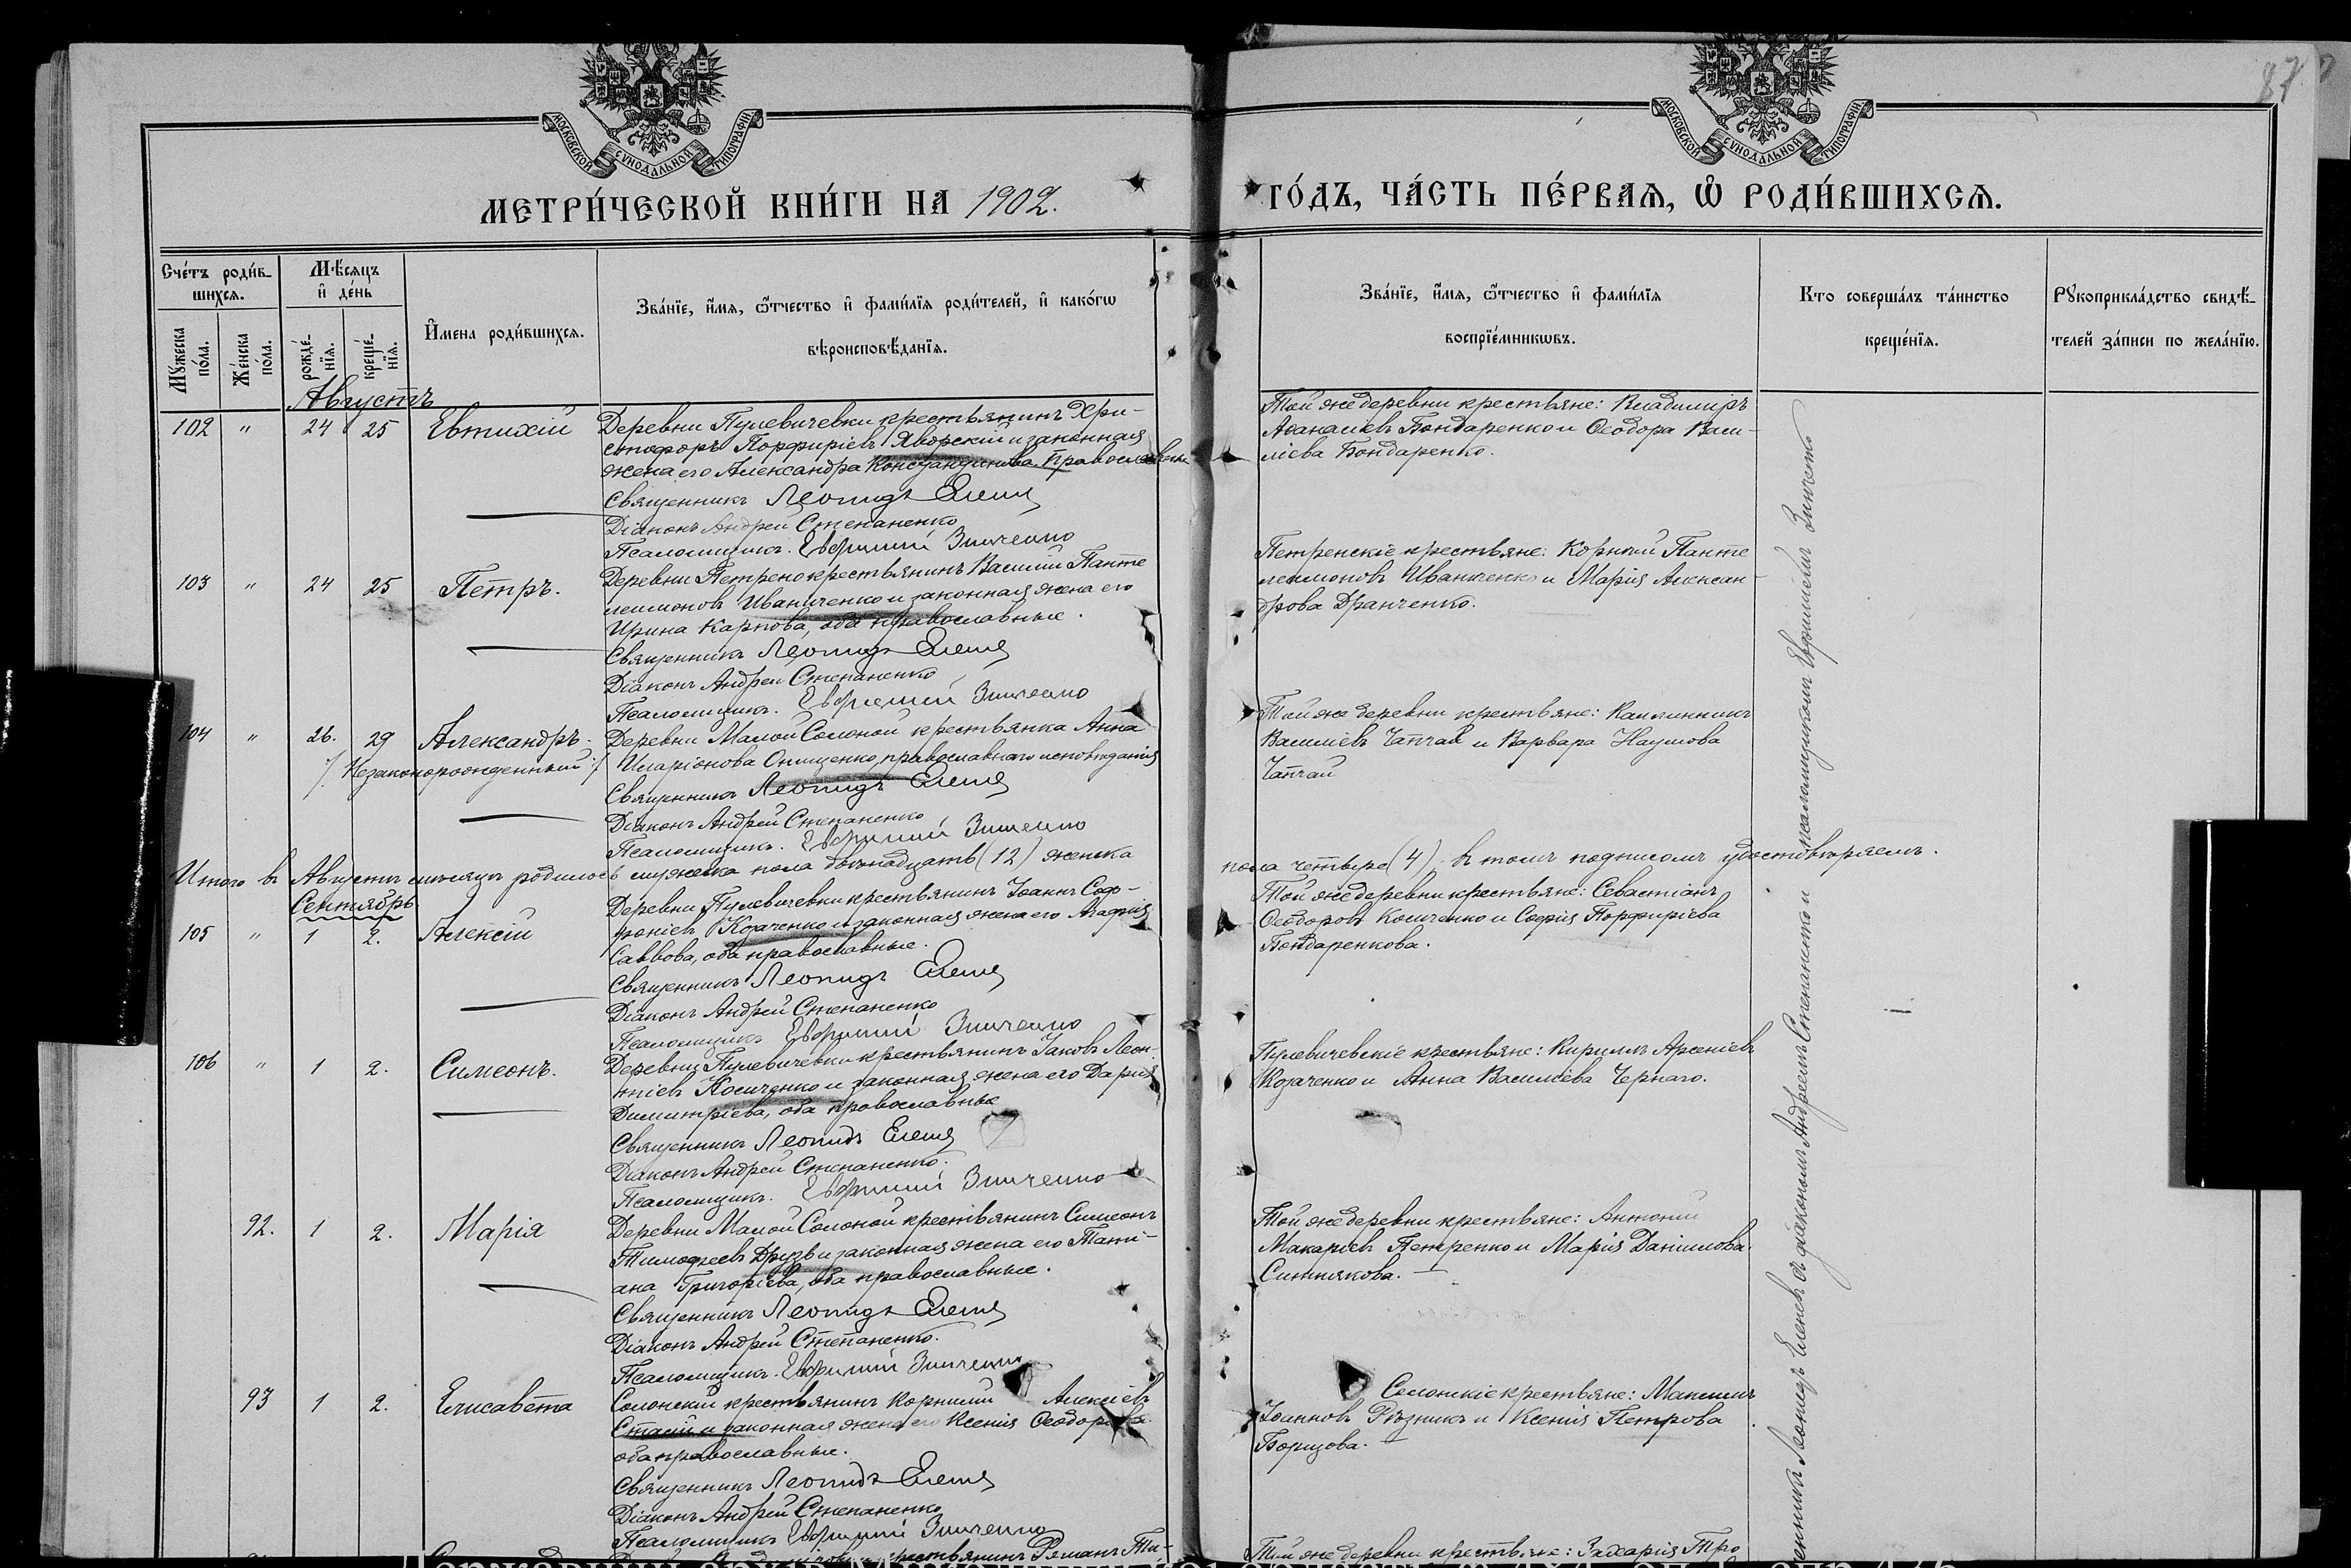 87
МОСКОВСКОЙ СѴНОДАЛЬНОЙ ТИПОГРАФІИ
МОСКОВСКОЙ СѴНОДАЛЬНОЙ ТИПОГРАФІИ
МЕТРИ́ЧЕСКОЙ КНИ́ГИ НА 1902. ГО́ДЪ, ЧА́СТЬ ПЕ́РВАЯ, Ѡ РОДИ́ВШИХСЯ.
Сче́тъ роди́в-
шихся.
Мꙋжеска по́ла.
Же́нска по́ла.
Мѣ́сяцъ и де́нь
рожде́-нїя.
креще́-нїя.
И́мена роди́вшихся.
Зва́нїе, и́мя, ѻ́тчество и фами́лїя роди́телей, и како́гѡ
вѣроисповѣ́данїя.
Зва́нїе, и́мя, ѻ́тчество и фами́лїя
воспрїе́мникѡвъ.
Кто соверша́лъ та́инство
креще́нїя.
Рꙋкоприкла́дство свидѣ́-
телей за́писи по жела́нїю.
Августъ
102 " 24 25 Евтихій
Деревни Пулевичевки крестьянинъ Хри-
стофоръ Порфиріевъ Яворскій и законная
жена его Александра Константинова, православные
Священникъ Леонидъ
Діаконъ Андрей Степаненко
Псаломщикъ. Евфимій Зинченко
Той же деревни крестьяне: Владиміръ
Аѳанасіевъ Бондаренко и Ѳеодора Васи-
ліева Бондаренко.
103 " 24 25 Петръ.
Деревни Петрено крестьянинъ Василій Панте
леимоновъ Иваниченко и законная жена его
Ирина Карпова, оба православные.
Священникъ Леонидъ
Діаконъ Андрей Степаненко
Псаломщикъ. Евфимій Зинченко
Петренскіе крестьяне: Корнилій Панте
леимоновъ Иваниченко и Марія Алексан-
дрова Дранченко.
104 " 26. 29 Александръ.
/. Незаконорожденный ./
Деревни Малой Солоной крестьянка Анна
Иларіонова Онищенко, православнаго исповѣданія
Священникъ Леонидъ
Діаконъ Андрей Степаненко
Псаломщикъ. Евфимій Зинченко
Той же деревни крестьяне: Каллиникъ
Василіевъ Чапчай и Варвара Наумова
Чапчай
Итого въ Августѣ мѣсяцѣ родилось мужеска пола двѣнадцать (12) женска пола четыре (4), въ томъ подписомъ удостовѣряемъ.
Сентябрь
105 " 1 2. Алексій
Деревни Пулевичевки крестьянинъ Іоаннъ Соф-
роніевъ Козаченко и законная жена его Агафія
Саввова, оба православные.
Священникъ Леонидъ
Діаконъ Андрей Степаненко
Псаломщикъ Евфимій Зинченко
Той же деревни крестьяне: Севастіанъ
Ѳеодоровъ Косиченко и Софія Порфиріева
Бондаренкова.
106 " 1 2. Симеонъ.
Деревни Пулевичевки крестьянинъ Іаковъ Леон-
тіевъ Косиченко и законная жена его Дарія
Димитріева, оба православные
Священникъ Леонидъ
Діаконъ Андрей Степаненко.
Псаломщикъ. Евфимій Зинченко
Пулевичевскіе крестьяне: Кириллъ Арсеніевъ
Козаченко и Анна Василіева Чернаго.
92. 1 2. Марія
Деревни Малой Солоной крестьянинъ Симеонъ
Тимофеевъ Друзь и законная жена его Тати-
ана Григоріева, оба православные.
Священникъ Леонидъ
Діаконъ Андрей Степаненко.
Псаломщикъ. Евфимій Зинченко
Той же деревни крестьяне: Антоній
Макаріевъ Петренко и Марія Даніилова
Ситникова.
93 1 2. Елисавета
Солонскій крестьянинъ Корнилій Алексіевъ
и законная жена его Ксенія Ѳеодорова
оба православные.
Священникъ Леонидъ
Діаконъ Андрей Степаненко
Псаломщикъ Евфимій Зинченко
Солонскіе крестьяне: Максимъ
Іоанновъ Рѣзникъ и Ксенія Петрова
Борщова.
крестьянинъ Романъ Ти-
Той же деревни крестьяне: Захарія Тро
Леонидъ Еленевъ съ діакономъ Андреемъ Степаненко и псаломщикомъ Евфиміемъ Зинченко